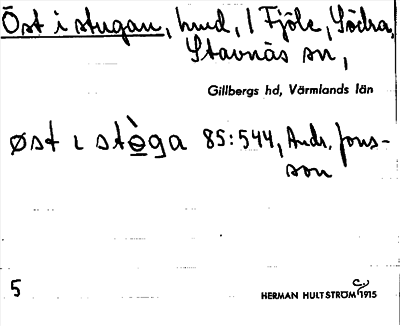 Öst i stugan, hmd, / Fjöle, Södra,
Stavnäs sn,
Gillbergs hd, Värmlands län
øst ɩ stɵ̀ga 85:544, Andr. Jons-
son
5
HERMAN HULTSTRÖM 1915